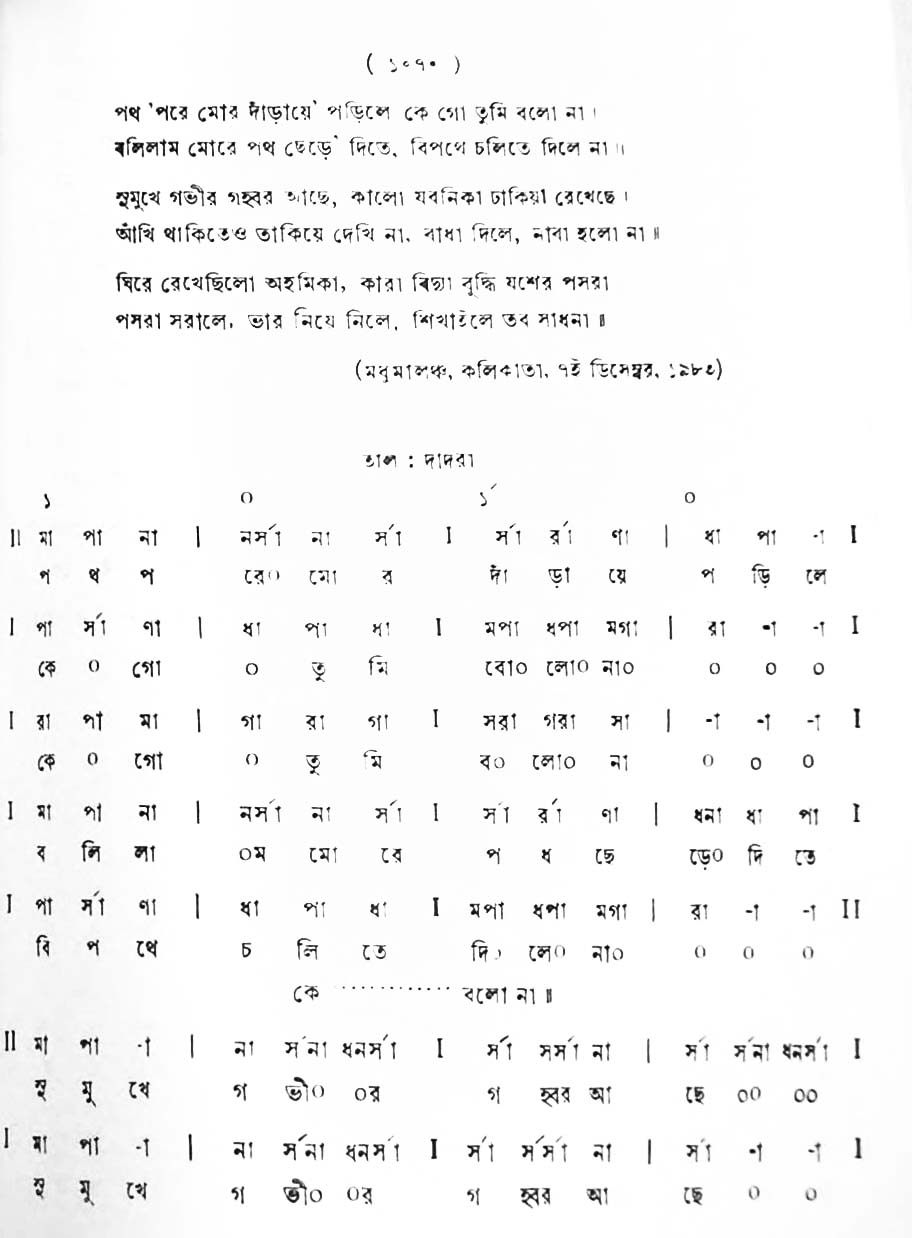 ( ১০৭০ )
পথ 'পরে মোর দাঁড়ায়ে' পড়িলে কে গো তুমি বলো না।
বলিলাম মোরে পথ ছেড়ে' দিতে, বিপথে চলিতে দিলে না॥
সুমুখে গভীর গহ্বর আছে, কালো যবনিকা ঢাকিয়া রেখেছে।
আঁখি থাকিতেও তাকিয়ে দেখি না, বাধা দিলে, নাবা হলো না॥
ঘিরে রেখেছিলো অহমিকা, কারা বিদ্যা বুদ্ধি যশের পসরা
পসরা সরালে, ভার নিয়ে নিলে, শিখাইলে তব সাধনা॥
(মধুমালঞ্চ, কলিকাতা, ৭ই ডিসেম্বর,
তাল : দাদরা
১ ০ ১́ ০
II মা পা না | নর্সা না র্সা I র্সা র্রা ণা | ধা পা -া I
প থ প রে০ মো র দাঁ ড়া য়ে প ড়ি লে
I পা র্সা ণা | ধা পা ধা I মপা ধপা মগা | রা -া -া I
কে ০ গো ০ তু মি বো০ লো০ না০ ০ ০ ০
I রা পা মা | গা রা গা I সরা গরা সা | -া -া -া I
কে ০ গো ০ তু মি ব০ লো০ না ০ ০ ০
I মা পা না | নর্সা না র্সা I র্সা র্রা ণা | ধনা ধা পা I
ব লি লা ০ম মো রে প থ ছে ড়ে০ দি তে
I পা র্সা ণা | ধা পা ধা I মপা ধপা মগা | রা -া -া II
বি প থে চ লি তে দি০ লে০ না০ ০ ০ ০
কে ············ বলো না॥
II মা পা -া | না র্সনা ধনর্সা I র্সা র্সর্সা না | র্সা র্সনা ধনর্সা I
সু মু খে গ ভী০ ০র গ হ্বর আ ছে ০০ ০০
I মা পা -া | না র্সনা ধনর্সা I র্সা র্সর্সা না | র্সা -া -া I
সু মু খে গ ভী০ ০র গ হ্বর আ ছে ০ ০